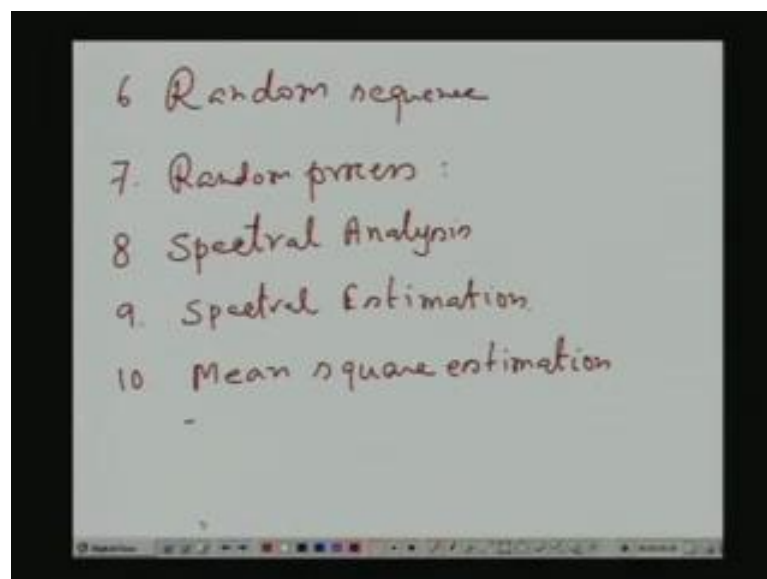 6 Random sequence
7. Random process :
8 Spectral Analysis
9. Spectral Estimation.
10 Mean square estimation
-